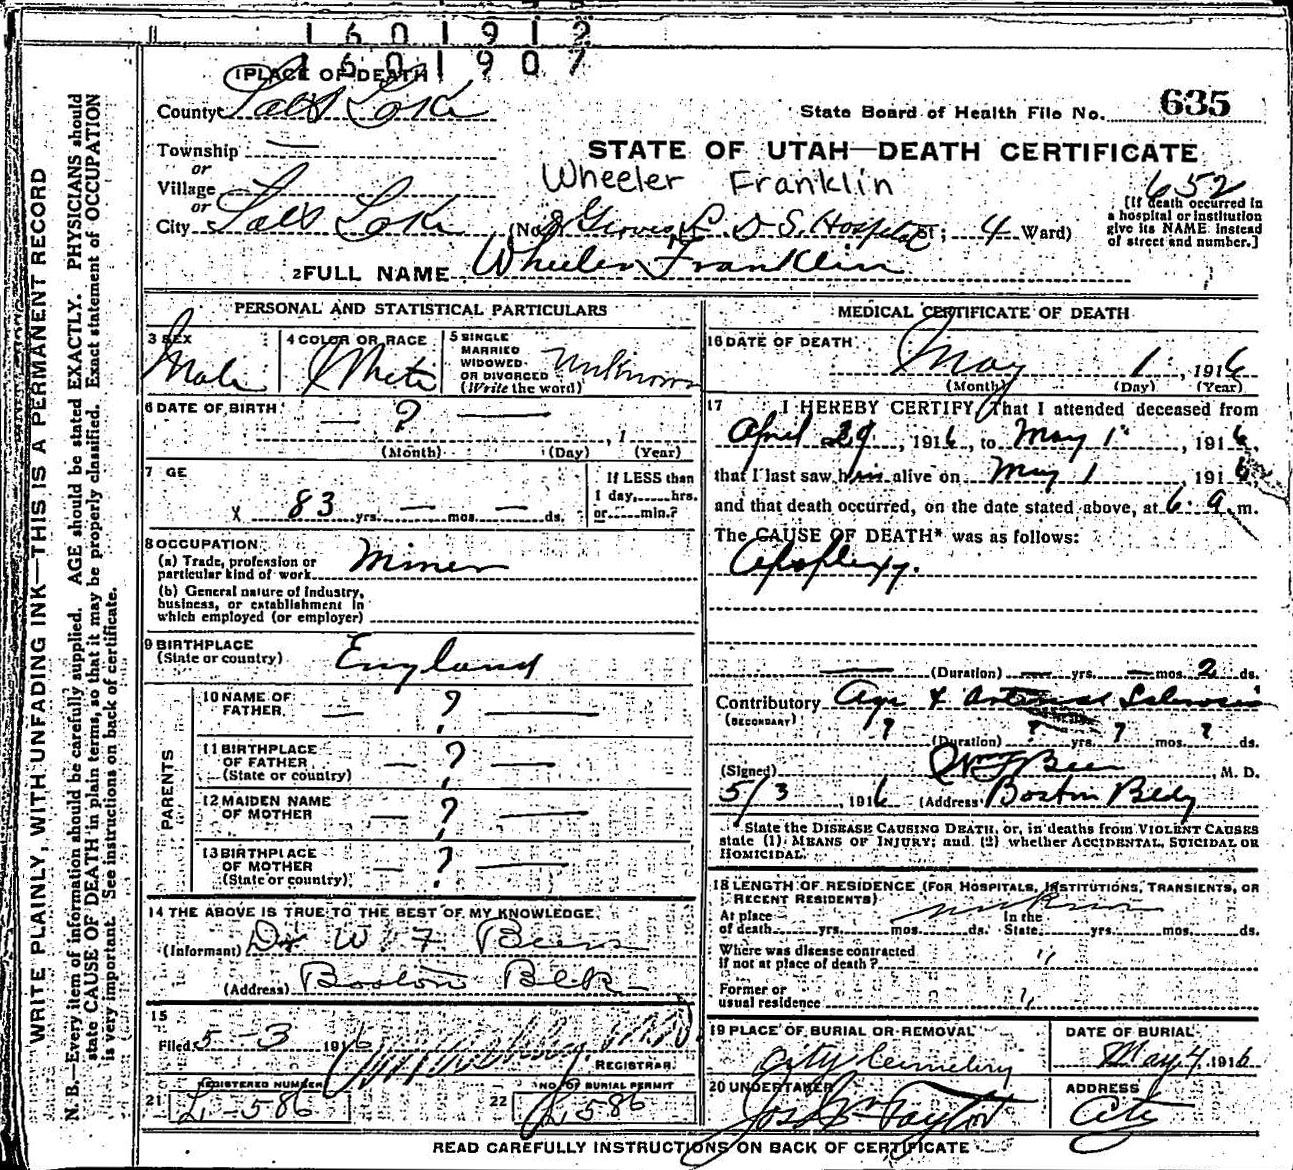 1 6 0 1 9 1 2
1 6 0 1 9 0 7
1 PLACE OF DEATH
County Salt Lake
State Board of Health File No. 635
Township —
or
Village
or
City Salt Lake
STATE OF UTAH—DEATH CERTIFICATE
Wheeler Franklin
652
(No. Groves L. D. S. Hospital St; 4 Ward)
[If death occurred in
a hospital or institution
give its NAME instead
of street and number.]
2 FULL NAME Wheeler Franklin
PERSONAL AND STATISTICAL PARTICULARS
3 SEX
Male
4 COLOR OR RACE
White
5 SINGLE
MARRIED
WIDOWED
OR DIVORCED
(Write the word)
Unknown
6 DATE OF BIRTH
— ? —
, 1
(Month) (Day) (Year)
7 GE
X 83 yrs. — mos. — ds.
If LESS than
1 day,......hrs.
or......min.?
8 OCCUPATION
(a) Trade, profession or
particular kind of work Miner
(b) General nature of industry,
business, or establishment in
which employed (or employer)
9 BIRTHPLACE
(State or country) England
PARENTS
10 NAME OF
FATHER — ? —
11 BIRTHPLACE
OF FATHER
(State or country) — ? —
12 MAIDEN NAME
OF MOTHER — ? —
13 BIRTHPLACE
OF MOTHER
(State or country) — ? —
14 THE ABOVE IS TRUE TO THE BEST OF MY KNOWLEDGE
(Informant) Dr W F Beers
(Address) Boston Blk
15
Filed 5-3 1916
REGISTRAR
REGISTERED NUMBER
21 L-586
NO. OF BURIAL PERMIT
22 L 586
MEDICAL CERTIFICATE OF DEATH
16 DATE OF DEATH
May 1, 1916
(Month) (Day) (Year)
17 I HEREBY CERTIFY That I attended deceased from
April 29, 1916, to May 1, 1916,
that I last saw him alive on May 1 1916
and that death occurred, on the date stated above, at 6 a. m.
The CAUSE OF DEATH* was as follows:
Apoplexy.
— (Duration) — yrs. — mos. 2 ds.
Contributory Age & Arterial Sclerosis
(SECONDARY)
? (Duration) ? yrs. ? mos. ? ds.
(Signed) Wm F Beer M. D.
5/3, 1916 (Address) Boston Bldg
*State the DISEASE CAUSING DEATH, or, in deaths from VIOLENT CAUSES
state (1) MEANS OF INJURY; and (2) whether ACCIDENTAL, SUICIDAL OR
HOMICIDAL.
18 LENGTH OF RESIDENCE (FOR HOSPITALS, INSTITUTIONS, TRANSIENTS, OR
RECENT RESIDENTS) unknown
At place In the
of death......yrs......mos......ds. State......yrs......mos......ds.
Where was disease contracted
if not at place of death? "
Former or
usual residence "
19 PLACE OF BURIAL OR REMOVAL
City Cemetery
DATE OF BURIAL
May 4 1916
20 UNDERTAKER
Jos Wm Taylor
ADDRESS
City
READ CAREFULLY INSTRUCTIONS ON BACK OF CERTIFICATE
WRITE PLAINLY, WITH UNFADING INK—THIS IS A PERMANENT RECORD
N. B.—Every item of information should be carefully supplied. AGE should be stated EXACTLY. PHYSICIANS should
state CAUSE OF DEATH in plain terms, so that it may be properly classified. Exact statement of OCCUPATION
is very important. See instructions on back of certificate.